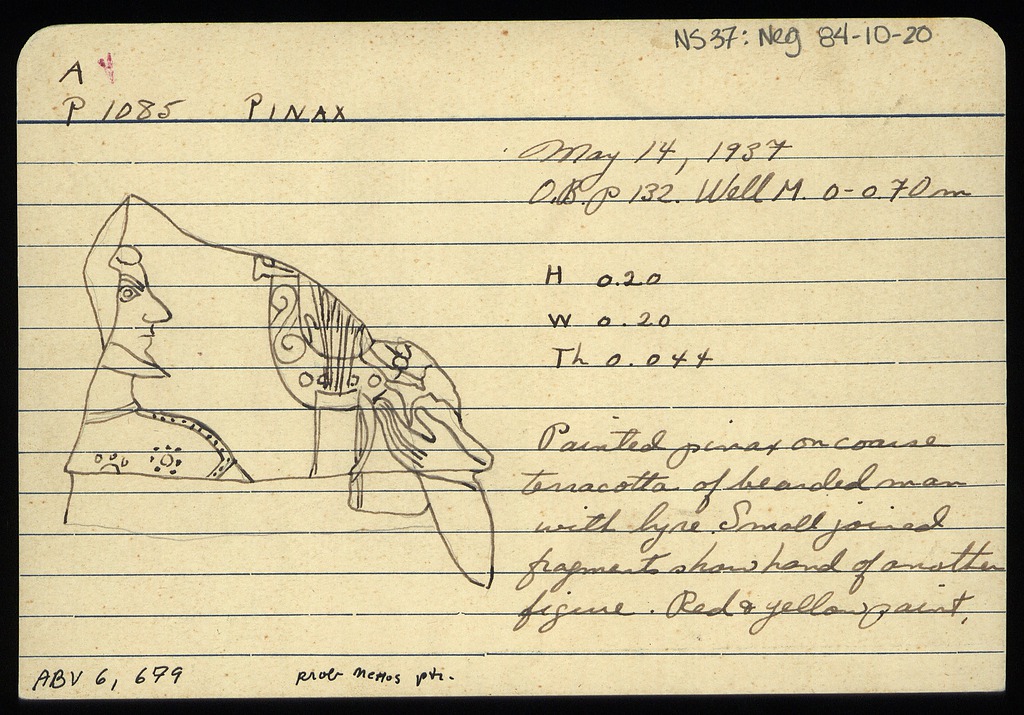 NS37: Neg 84-10-20
A
P 1085 PINAX
May 14, 1937
O.B. p 132. Well M. 0-0.70m
H 0.20
W 0.20
Th 0.044
Painted pinax on coarse
terracotta of bearded man
with lyre. Small joined
fragments show hand of another
figure. Red & yellow paint.
ABV 6, 679 prob Nettos ptr.